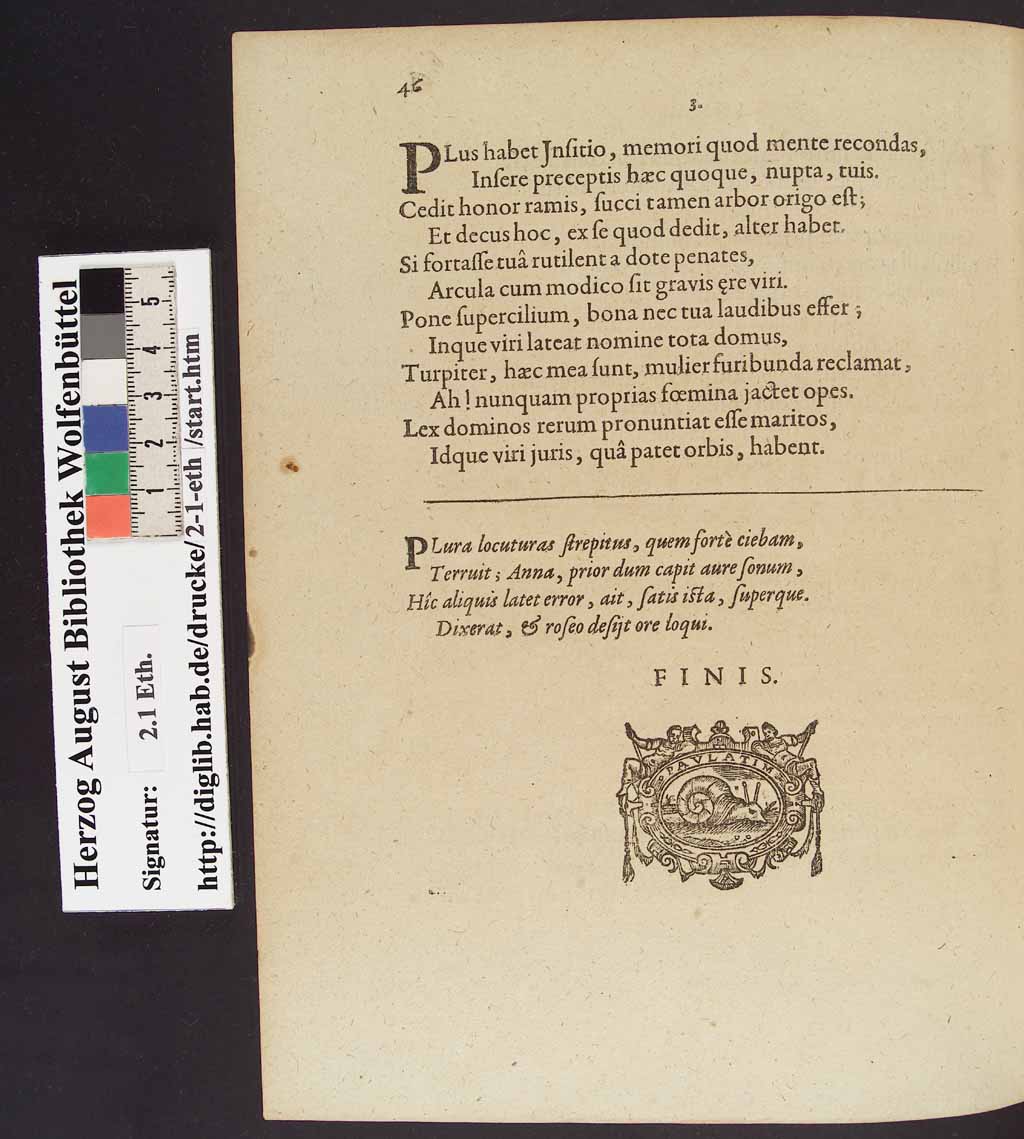 46
3.
PLus habet Jnſitio, memori quod mente recondas,
Inſere preceptis hæc quoque, nupta, tuis.
Cedit honor ramis, ſucci tamen arbor origo eſt;
Et decus hoc, ex ſe quod dedit, alter habet.
Si fortaſſe tuâ rutilent a dote penates,
Arcula cum modico ſit gravis ęre viri.
Pone ſupercilium, bona nec tua laudibus effer;
Inque viri lateat nomine tota domus,
Turpiter, hæc mea ſunt, mulier furibunda reclamat,
Ah! nunquam proprias fœmina jactet opes.
Lex dominos rerum pronuntiat eſſe maritos,
Idque viri juris, quâ patet orbis, habent.
PLura locuturas ſtrepitus, quem fortè ciebam,
Terruit; Anna, prior dum capit aure ſonum,
Hîc aliquis latet error, ait, ſatis iſta, ſuperque.
Dixerat, & roſeo deſijt ore loqui.
FINIS.
PAVLATIM
Herzog August Bibliothek Wolfenbüttel
Signatur: 2.1 Eth.
http://diglib.hab.de/drucke/2-1-eth/start.htm
1 2 3 4 5